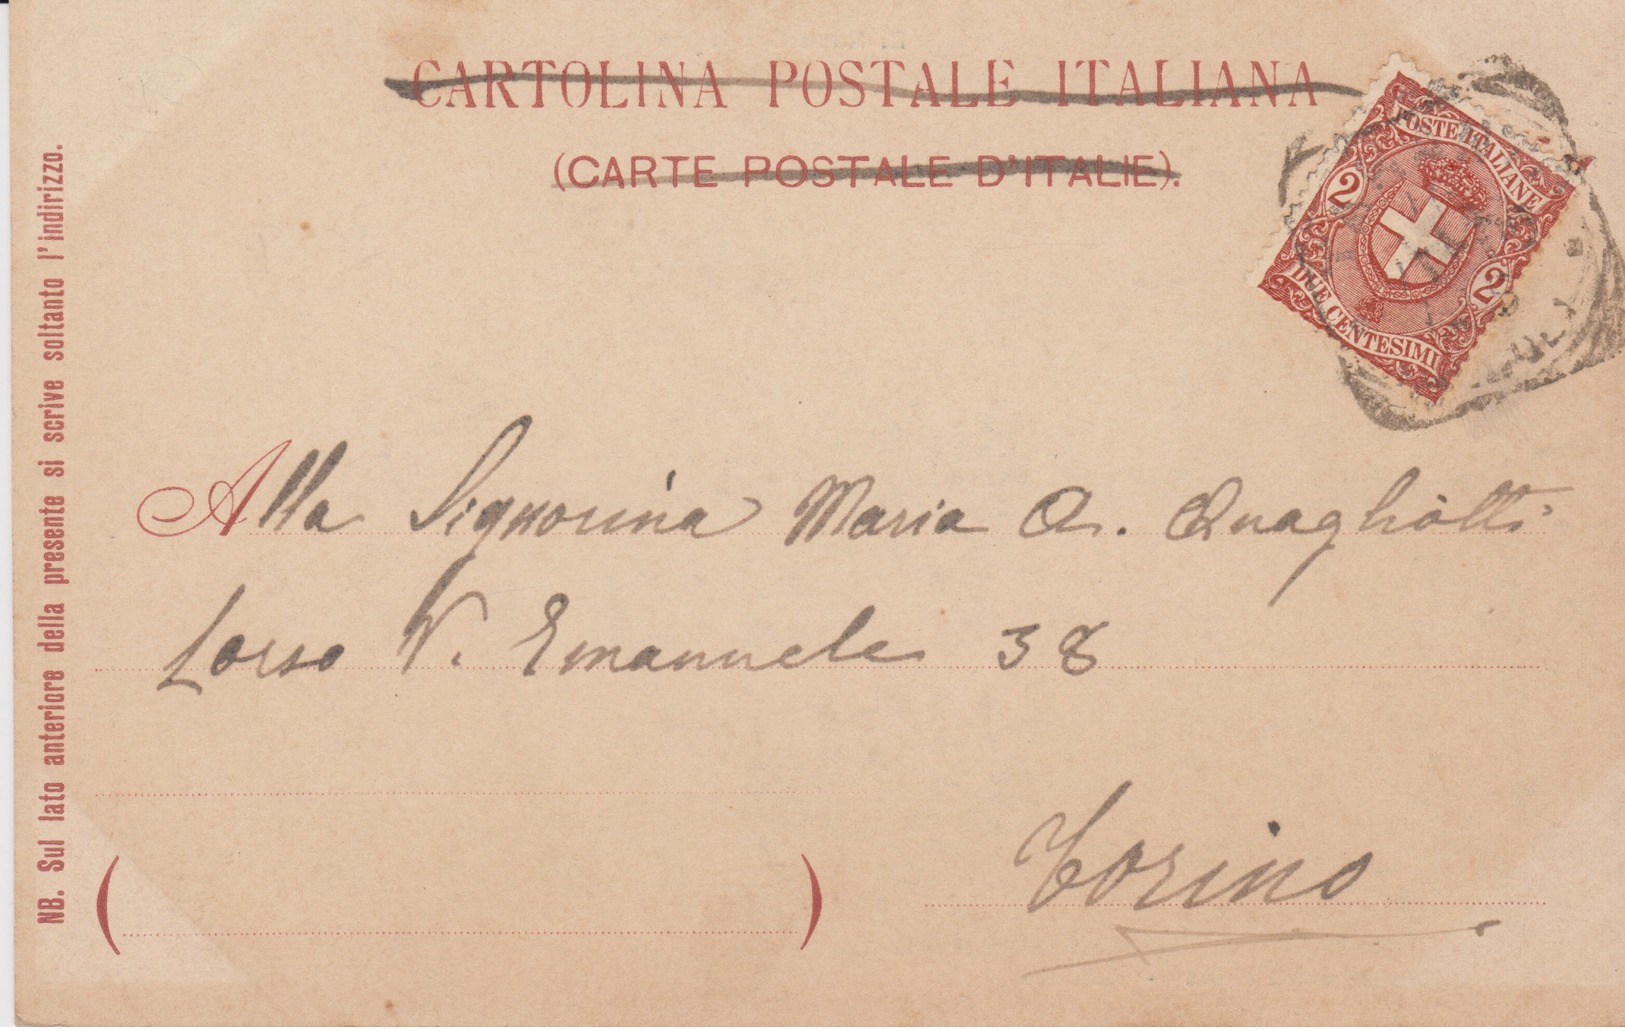 CARTOLINA POSTALE ITALIANA
(CARTE POSTALE D'ITALIE).
POSTE ITALIANE
2
2
DUE CENTESIMI
Alla Signorina Maria A. Quagliotti
Corso V. Emanuele 38
Torino
NB. Sul lato anteriore della presente si scrive soltanto l'indirizzo.